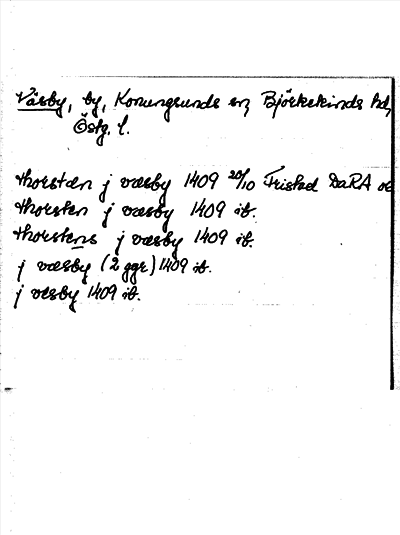 Väsby, by, Konungsunds sn, Björkekinds hd,
Östg. l.
thorstæn j wæsby 1409 20/10 Fristad DaRA oc
thorsten j wæsby 1409 ib.
thorstens j wæsby 1409 ib.
j wæsby (2 ggr) 1409 ib.
j wesby 1409 ib.